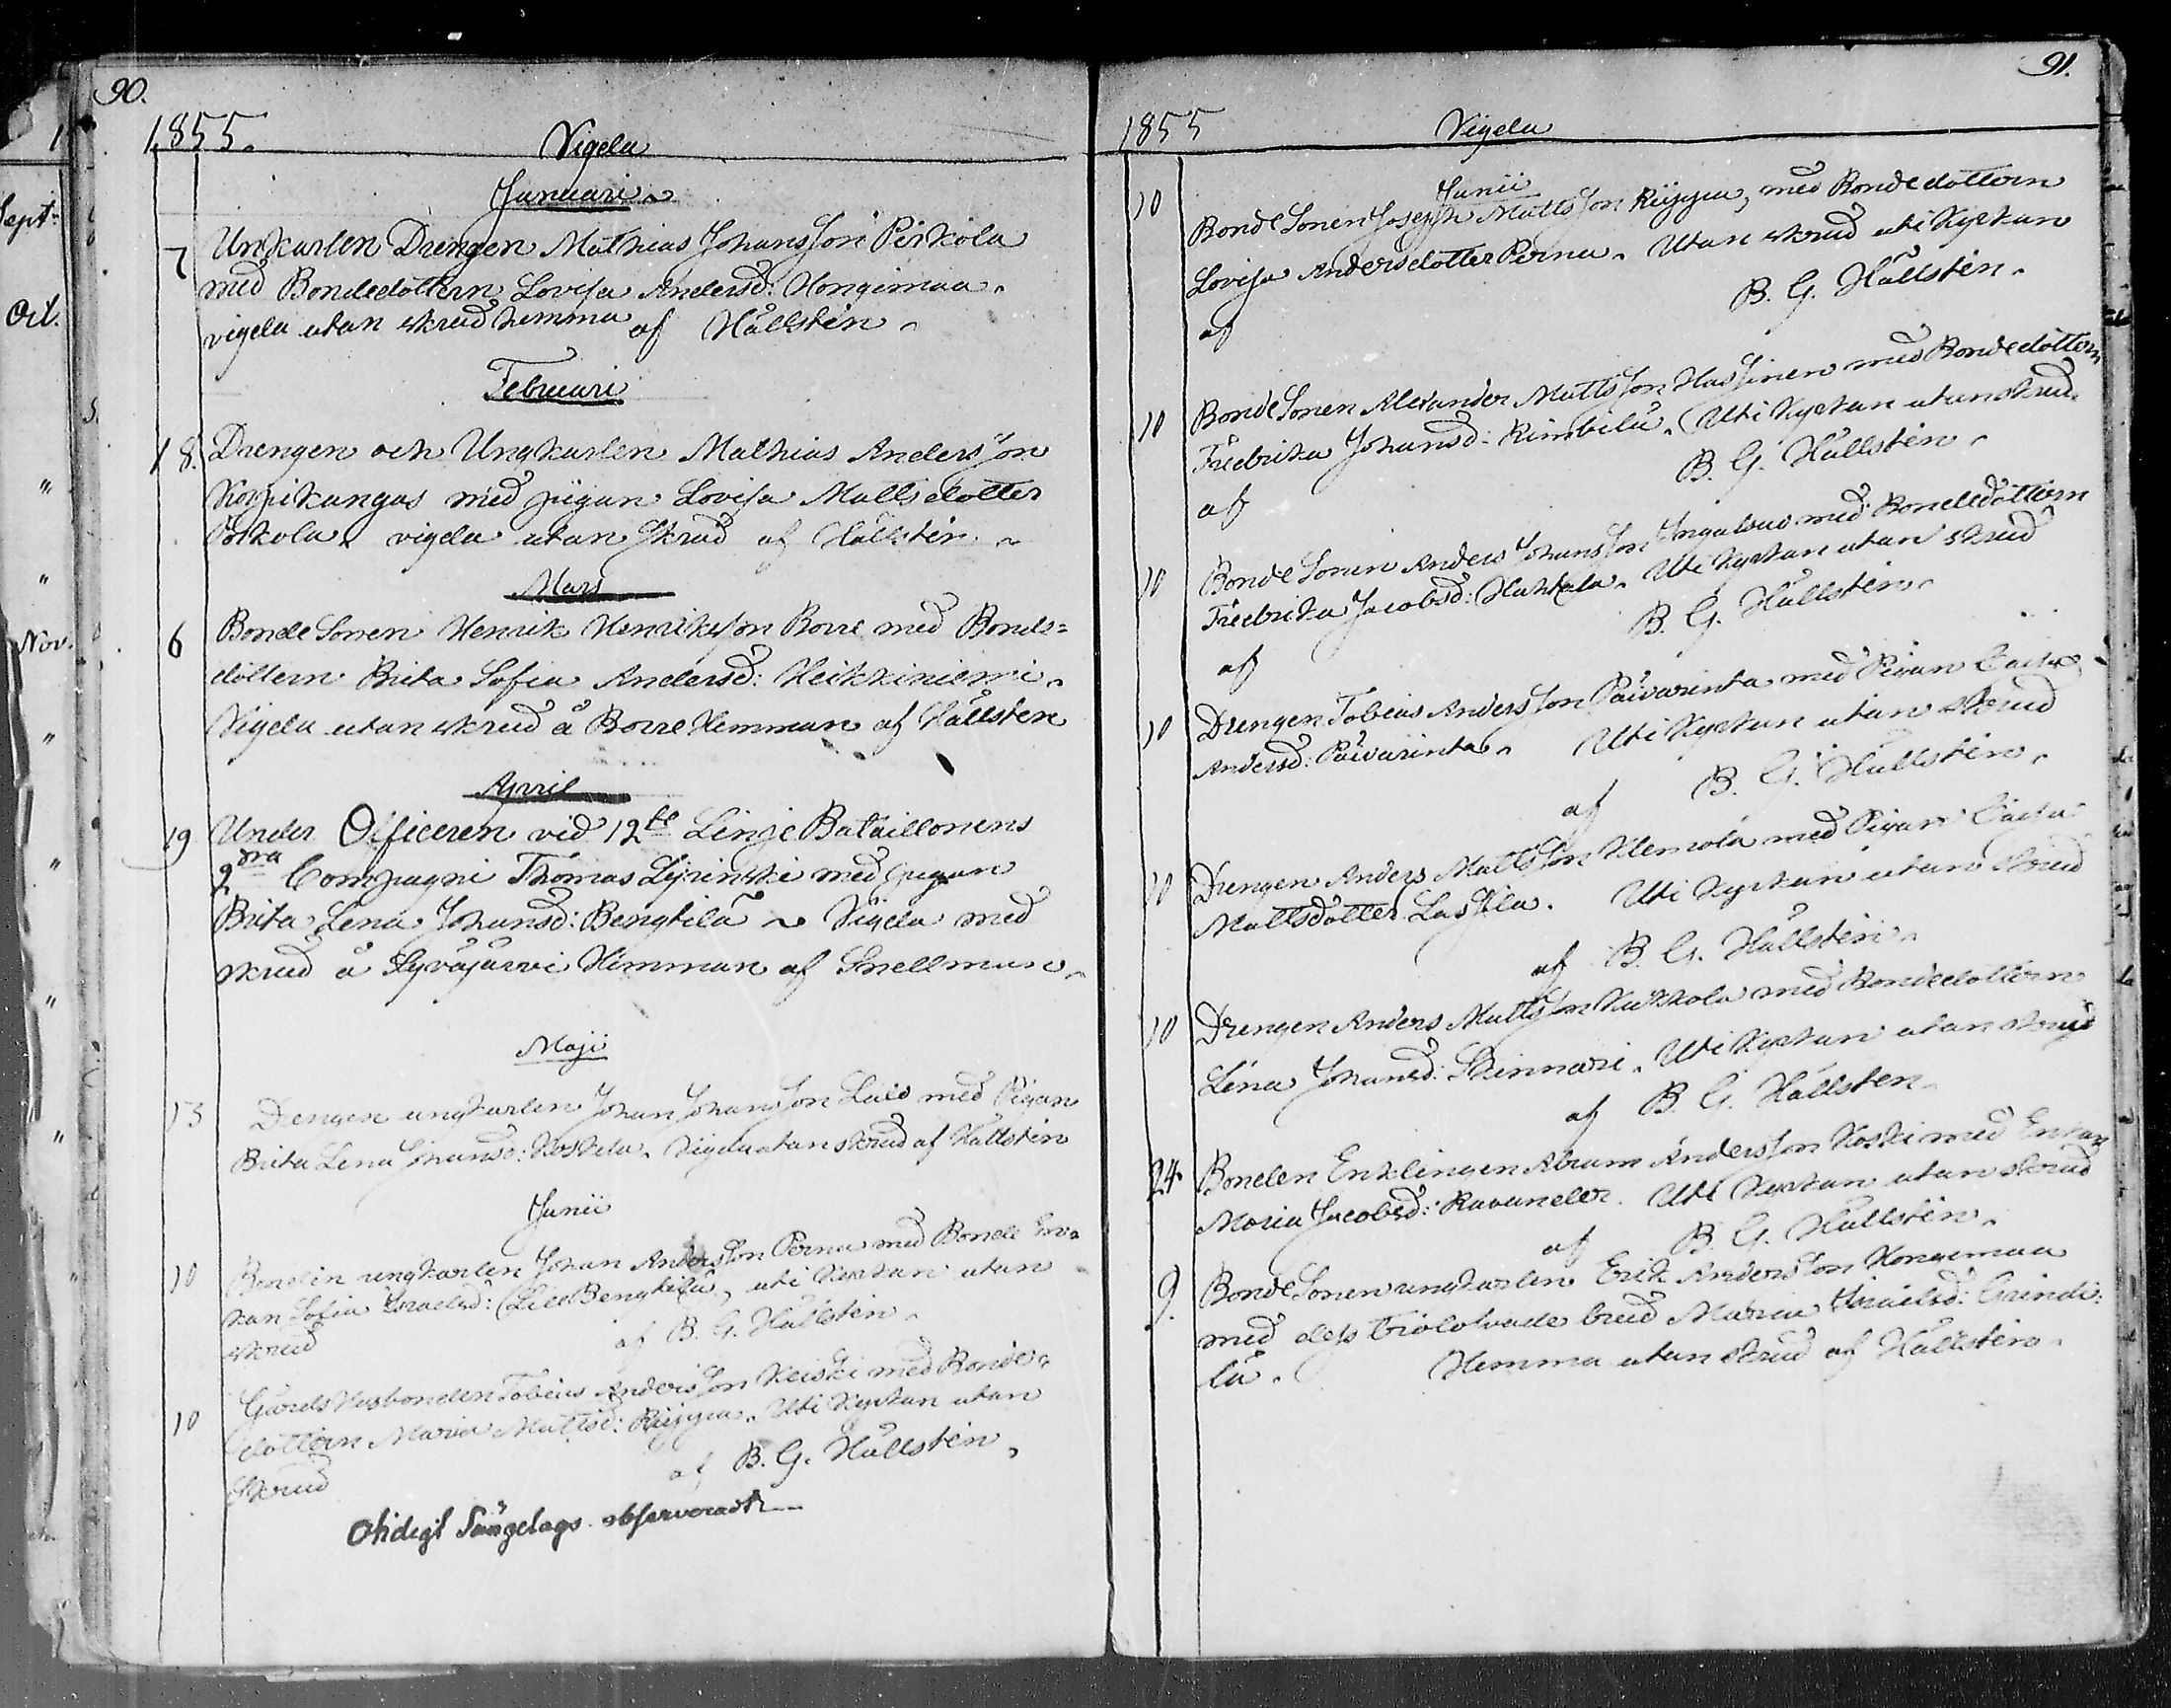 90.
1855.
Vigda
Januari
7 Unkarlen Drengen Mathias Johansson Perkola
med Bondedottern Lovisa Andersd: Hongimaa.
vigda utan skrud hemma af Hällstén.
Februari
18. Drengen och Ungkarlen Mathias Andersson
Korpikangas med pigan Lovisa Mattsdotter
vigda utan skrud af Hällstén.
Mars
6 Bonde Sonen Henrik Henriksson Borre med Bonde=
dottern Brita Sofia Andersd: Heikkiniemi.
Vigda utan skrud å Borre Hemman af Hällsten
April
19 Under Officeren vid 12te Linje Bataillonens
2dra Compagni Thomas med pigan
Brita Lena Johansd: Bengtilä Vigda med
skrud å Syväjärvi Hemman af Snellman.
Maji
13 Drengen ungkarlen Johan Johansson Lulo med Pigan
Brita Lena Johansd: Koskela. Vigda utan skrud af Hällstén
Junii
10 Bonden ungkarlen Johan Andersson Perna med Bonde En=
kan Sofia Israelsd: Lill Bengtilä, uti Kyrkan utan
skrud af B. G. Hällstén.
10 Gårds Husbonden Tobias Andersson Keiski med Bonde=
dottern Maria Mattsd: Ryppa. Uti Kyrkan utan
skrud af B. G. Hällstén.
observeradt
91.
1855
Vigda
Junii
10 Bonde Sonen Joseph Mattsson Ryppa, med Bondedottern
Lovisa Andersdotter Perna. Utan skrud uti Kyrkan
af B. G. Hällstén.
10 Bonde Sonen Alexander Mattsson Hassinen med Bondedottern
Fredrika Johansd: Rimbilä. Uti Kyrkan utan skrud.
af B. G. Hällstén.
10 Bonde Sonen Anders Johansson Ingalsuo med Bondedottern
Fredrika Jacobsd: Huhtala. Uti Kyrkan utan skrud
af B. G. Hällstén.
10 Drengen Tobias Andersson Päivärinta med Pigan Cajsa
Andersd: Päivärinta. Uti Kyrkan utan skrud
af B. G. Hällstén.
10 Drengen Anders Mattsson Klemola med Pigan Cajsa
Mattsdotter Lassila. Uti Kyrkan utan skrud
af B. G. Hällstén.
10 Drengen Anders Mattsson Kukkola med Bondedottern
Lena Johansd: Skinnari. Uti Kyrkan utan skrud
af B. G. Hällsten.
24 Bonden Enklingen Abram Andersson Koski med Enkan
Maria Jacobsd: Ravander. Uti Kyrkan utan skrud
af B. G. Hällstén.
9. Bonde Sonen ungkarlen Erik Andersson Hongimaa
med dess trolofvade brud Maria Israelsd: Grindi:
lä. Hemma utan skrud af Hällstén.
Sept:
Oct.
"
"
Nov.
"
"
"
"